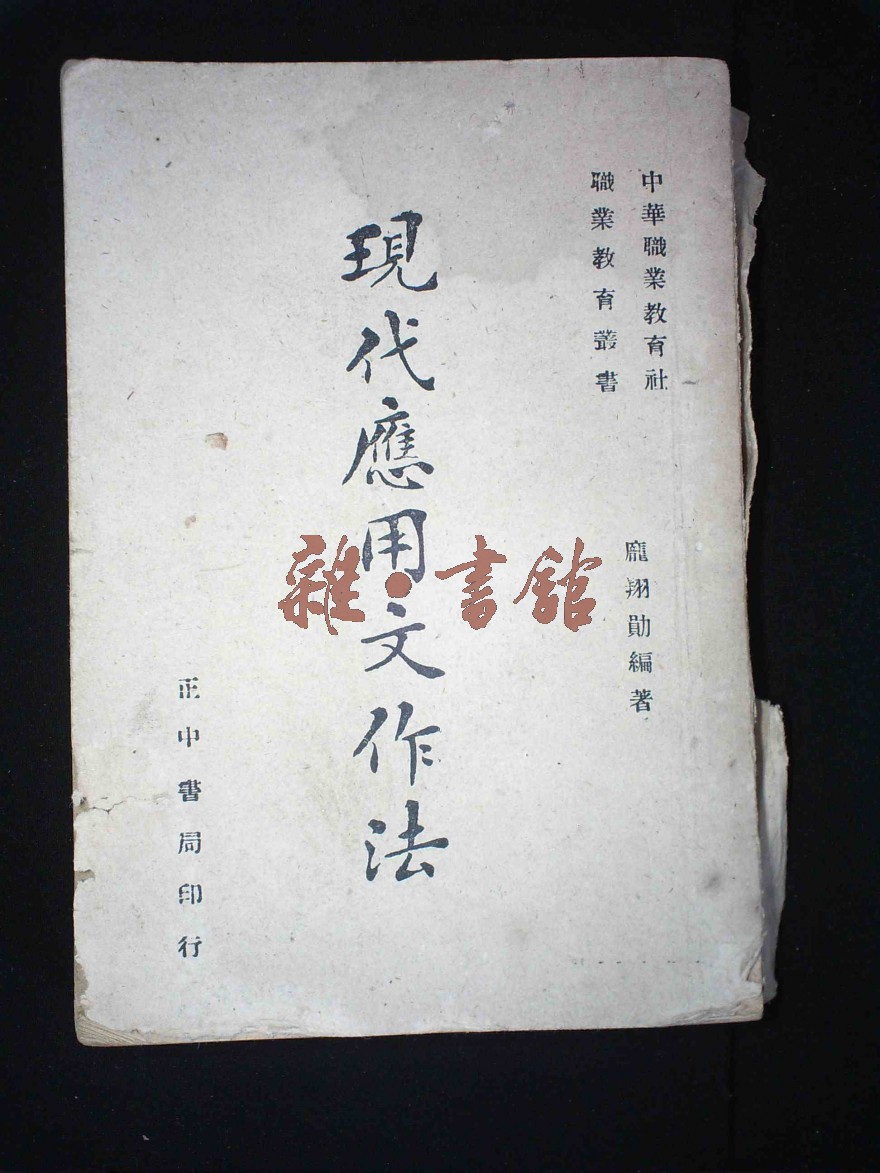 中華職業教育社
職業教育叢書
龐翔勛編著
現代應用文作法
正中書局印行
雜·書館